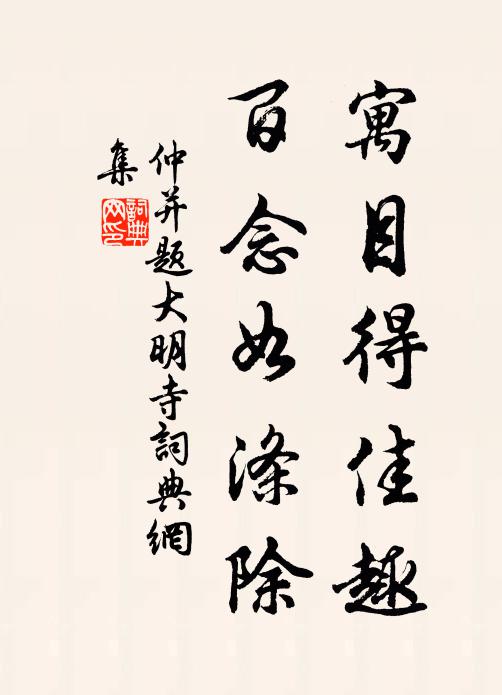 寓目得佳趣
百念如涤除
仲并题大明寺詞典網
集
詞典網印